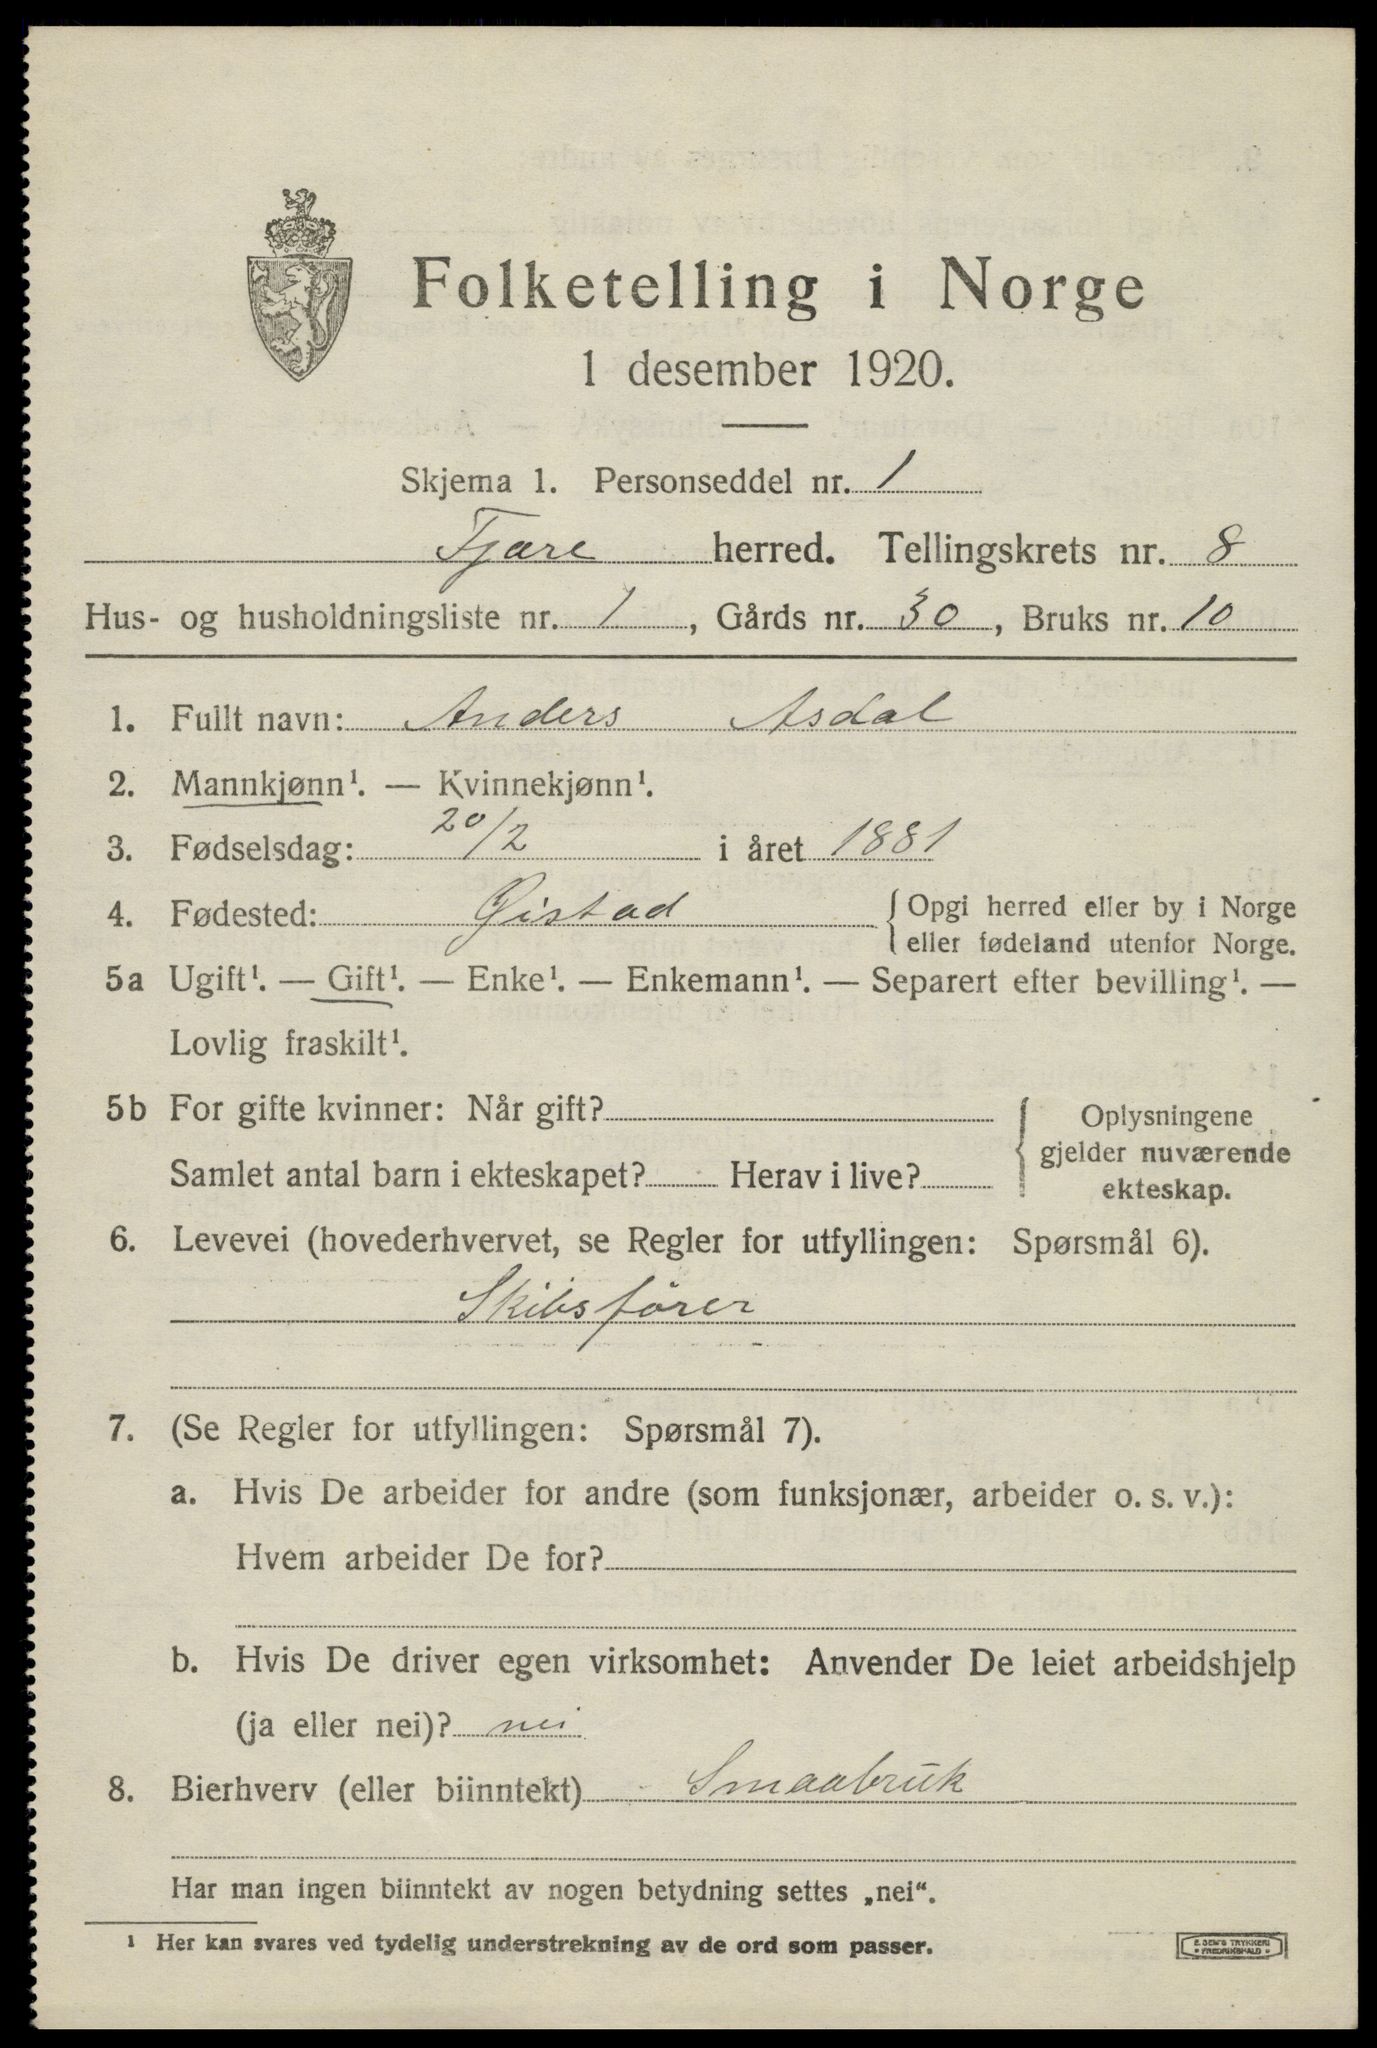 Folketelling i Norge
1 desember 1920.
Skjema 1. Personseddel nr. 1
Fjære herred. Tellingskrets nr. 8
Hus- og husholdningsliste nr. 1, Gårds nr. 30, Bruks nr. 10
1. Fullt navn: Anders Asdal
2. Mannkjønn¹. — Kvinnekjønn¹.
3. Fødselsdag: 20/2 i året 1881
4. Fødested: Øistad { Opgi herred eller by i Norge
eller fødeland utenfor Norge.
5a Ugift¹. — Gift¹. — Enke¹. — Enkemann¹. — Separert efter bevilling¹. —
Lovlig fraskilt¹.
5b For gifte kvinner: Når gift?
Samlet antal barn i ekteskapet? Herav i live?
{ Oplysningene
gjelder nuværende
ekteskap.
6. Levevei (hovederhvervet, se Regler for utfyllingen: Spørsmål 6).
Skibsfører
7. (Se Regler for utfyllingen: Spørsmål 7).
a. Hvis De arbeider for andre (som funksjonær, arbeider o. s. v.):
Hvem arbeider De for?
b. Hvis De driver egen virksomhet: Anvender De leiet arbeidshjelp
(ja eller nei)? nei
8. Bierhverv (eller biinntekt) Smaabruk
Har man ingen biinntekt av nogen betydning settes „nei“.
¹ Her kan svares ved tydelig understrekning av de ord som passer.
E. SEM'S TRYKKERI
FREDRIKSHALD